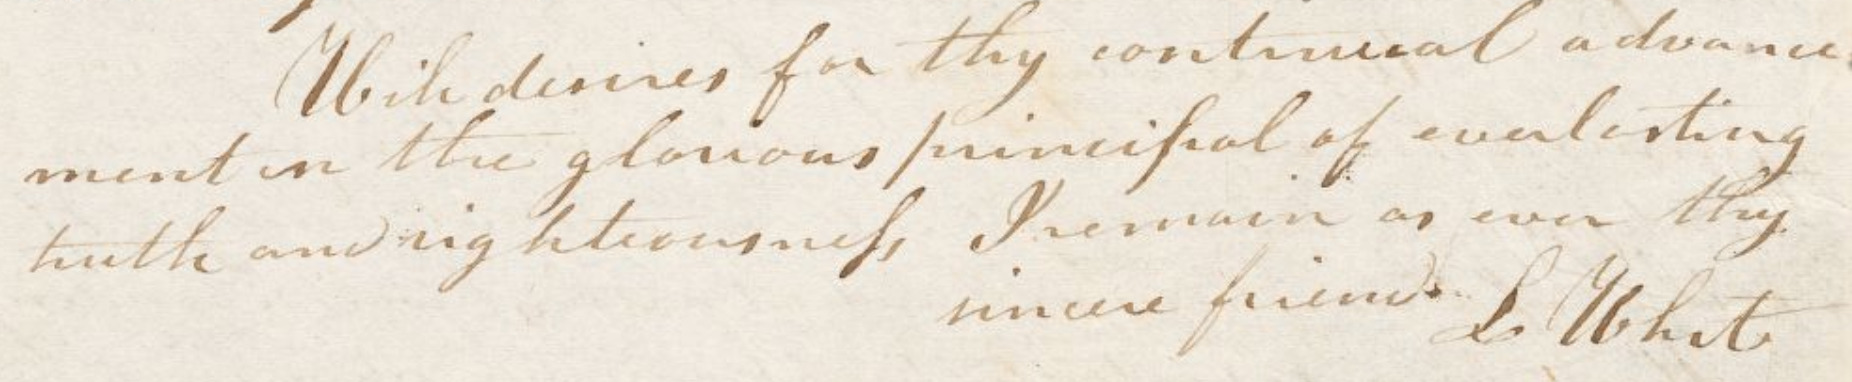 With desires for thy continual advance
ment in the glorious principal of everlasting
truth and righteousness I remain as ever thy
sincere friend L White